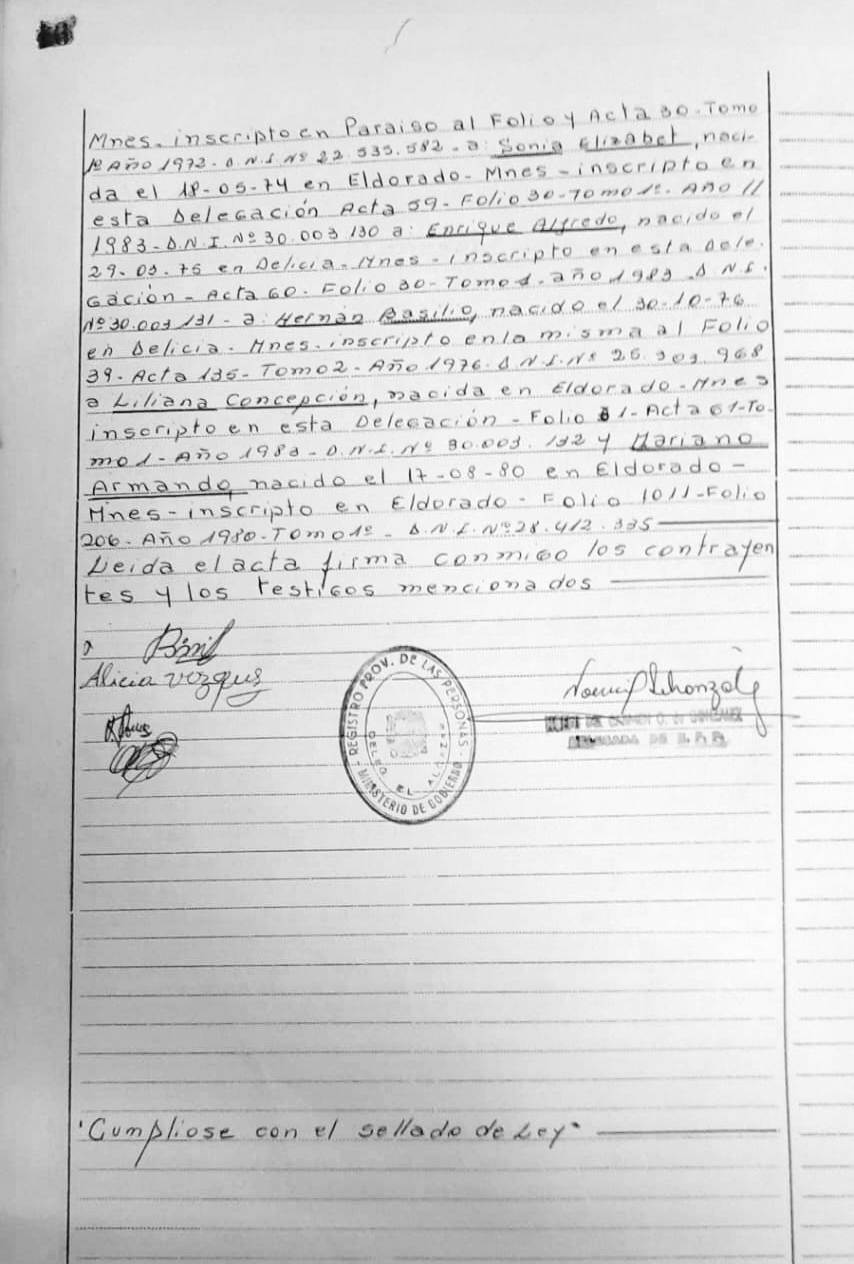 Mnes. inscripto en Paraiso al Folio y Acta 30. Tomo
1º Año 1973 - D.N.I. Nº 22.535.582 - a: Sonia Elizabet, naci-
da el 18-05-74 en Eldorado - Mnes - inscripto en
esta Delegación Acta 59 - Folio 30 - Tomo 1º. Año //
1983 - D.N.I. Nº 30.003.130 a: Enrique Alfredo, nacido el
29-03-75 en Delicia - Mnes - inscripto en esta Dele-
gación - Acta 60 - Folio 30 - Tomo 1 - año 1983 D.N.I.
Nº 30.003.131 - a: Hernán Basilio, nacido el 30-10-76
en Delicia - Mnes. inscripto en la misma al Folio
39 - Acta 135 - Tomo 2 - Año 1976. D.N.I. Nº 25.303.968
a Liliana Concepción, nacida en Eldorado - Mnes
inscripto en esta Delegación - Folio 31 - Acta 61 - To-
mo 1 - Año 1983 - D.N.I. Nº 30.003.132 y Mariano
Armando, nacido el 17-08-80 en Eldorado -
Mnes - inscripto en Eldorado - Folio 1011 - Folio
206. Año 1980 - Tomo 1º - D.N.I. Nº 28.412.335
Leida el acta firma conmigo los contrayen
tes y los testigos mencionados
Alicia
REGISTRO PROV. DE LAS PERSONAS
MINISTERIO DE GOBIERNO
"Cumpliose con el sellado de Ley"